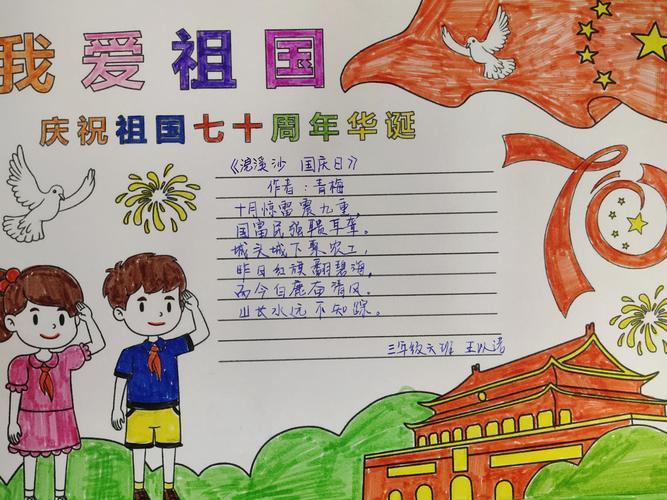 我爱祖国
庆祝祖国七十周年华诞
《浣溪沙 国庆日》
作者：青梅
十月惊雷震九重，
国富民强聩耳聋。
城头城下聚农工，
昨日红旗翻碧海，
而今白鹿奋清风。
山长水远不知踪。
三年级六班 王以诺
70